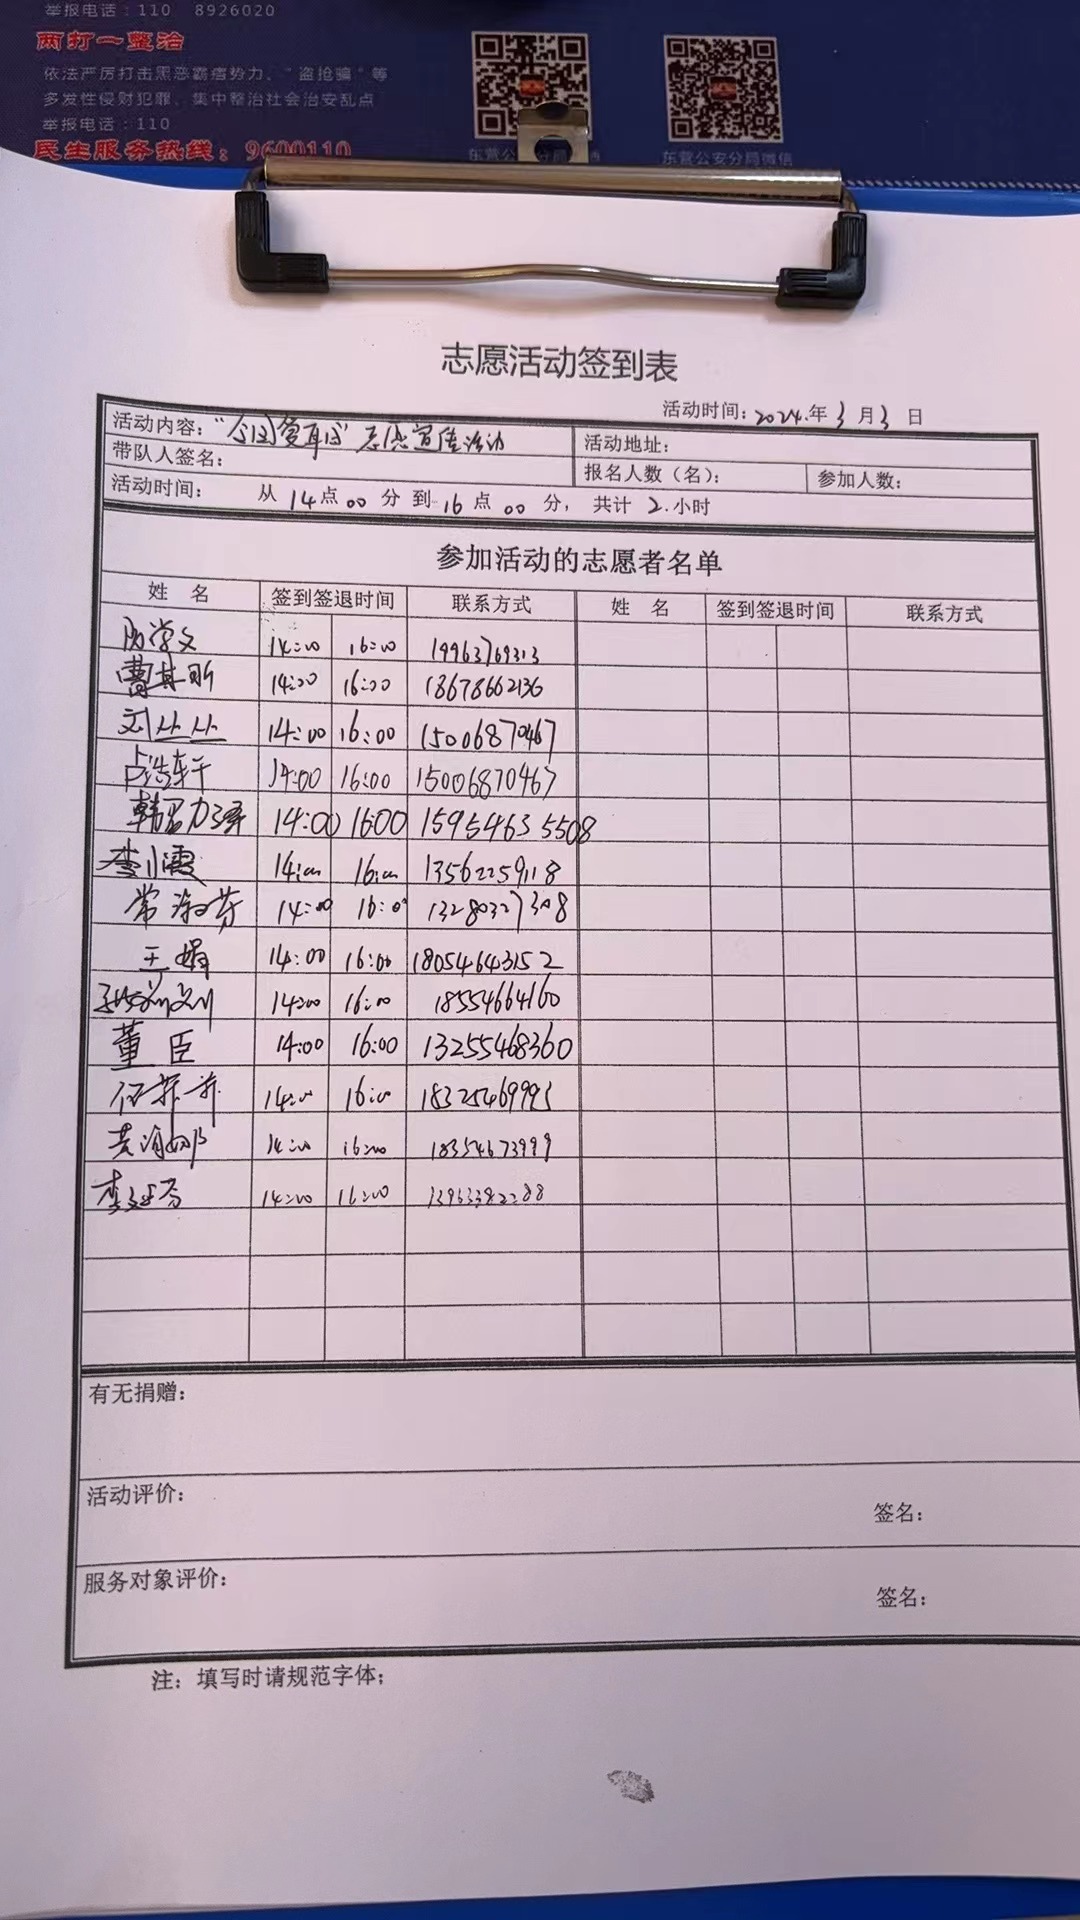 举报电话：110 8926020
两打一整治
依法严厉打击黑恶霸痞势力、"盗抢骗"等
多发性侵财犯罪，集中整治社会治安乱点
举报电话：110
民生服务热线：9600110
东营公安分局微博
东营公安分局微信
志愿活动签到表
活动时间：2024.年3月3日
活动内容："全国爱耳日"志愿宣传活动
活动地址：
带队人签名：
报名人数（名）：
参加人数：
活动时间： 从14点00分到16点00分，共计2.小时
参加活动的志愿者名单
姓 名 签到签退时间 联系方式 姓 名 签到签退时间 联系方式
14:00 16:00 19963769313
14:00 16:00 18678662136
刘丛丛 14:00 16:00 15006870467
占浩轩 14:00 16:00 15006870467
14:00 16:00 15954635508
李小霞 14:00 16:00 13562259118
常淑芬 14:00 16:00 13280327308
王娟 14:00 16:00 18054643152
14:00 16:00 18554664160
董臣 14:00 16:00 13255468360
14:00 16:00 18325469993
14:00 16:00 18354673999
14:00 16:00 13963382288
有无捐赠：
活动评价：
签名：
服务对象评价：
签名：
注：填写时请规范字体；